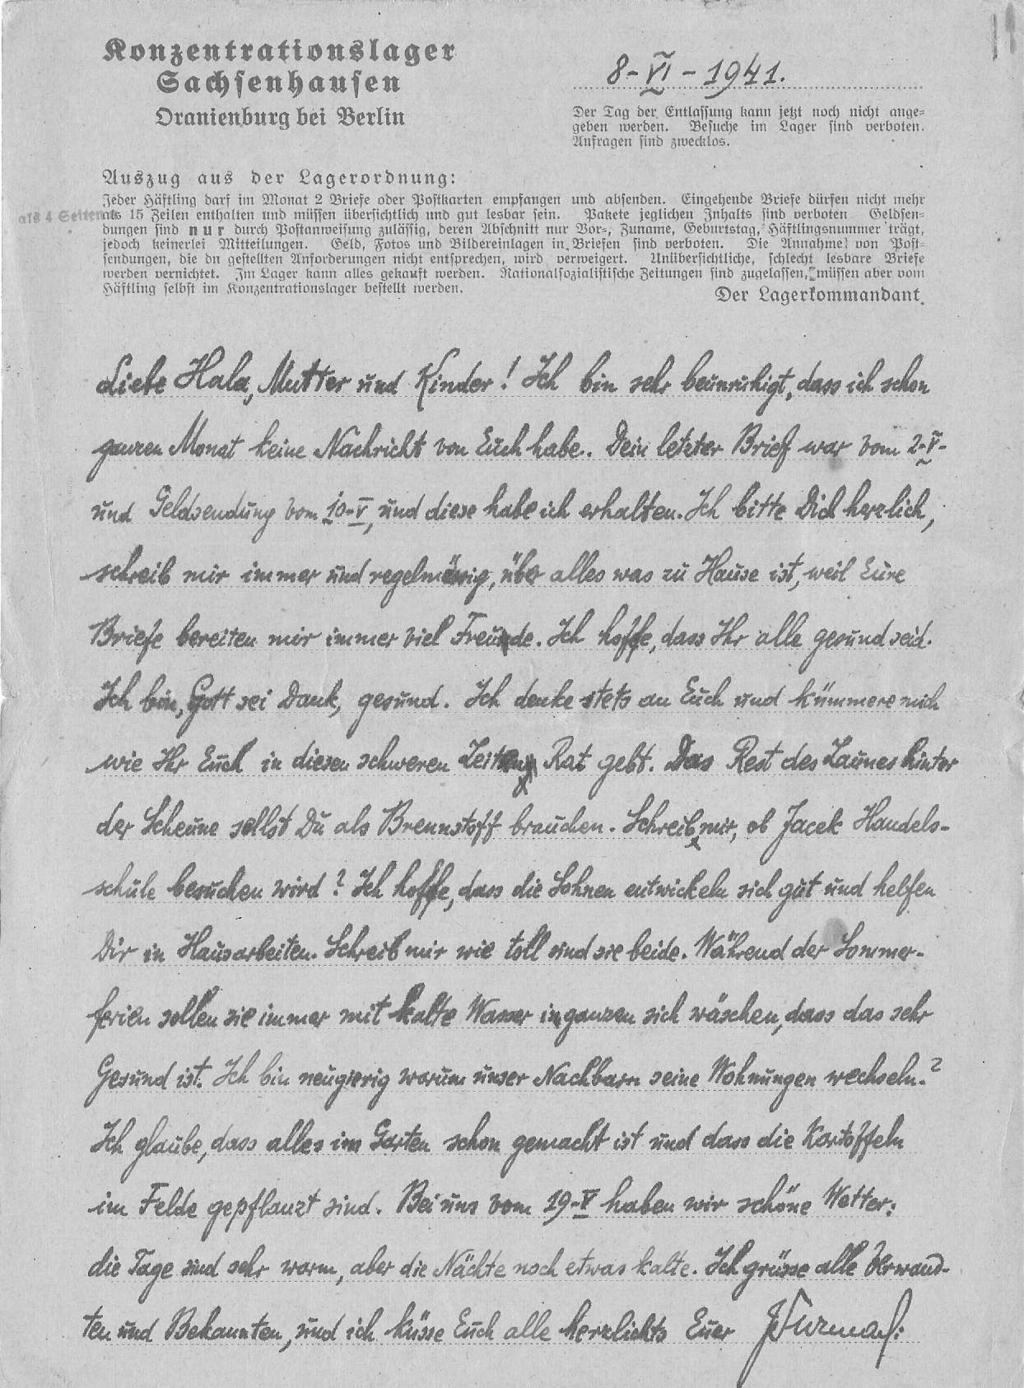 Konzentrationslager
Sachsenhausen
Oranienburg bei Berlin
8-VI-1941.
Der Tag der Entlassung kann jetzt noch nicht ange-
geben werden. Besuche im Lager sind verboten.
Anfragen sind zwecklos.
Auszug aus der Lagerordnung:
Jeder Häftling darf im Monat 2 Briefe oder Postkarten empfangen und absenden. Eingehende Briefe dürfen nicht mehr
als 4 Seiten als 15 Zeilen enthalten und müssen übersichtlich und gut lesbar sein. Pakete jeglichen Inhalts sind verboten Geldsen-
dungen sind nur durch Postanweisung zulässig, deren Abschnitt nur Vor-, Zuname, Geburtstag, Häftlingsnummer trägt,
jedoch keinerlei Mitteilungen. Geld, Fotos und Bildereinlagen in Briefen sind verboten. Die Annahme von Post-
sendungen, die dn gestellten Anforderungen nicht entsprechen, wird verweigert. Unübersichtliche, schlecht lesbare Briefe
werden vernichtet. Im Lager kann alles gekauft werden. Nationalsozialistische Zeitungen sind zugelassen, müssen aber vom
Häftling selbst im Konzentrationslager bestellt werden.
Der Lagerkommandant.
Liebe Hala, Mutter und Kinder! Ich bin sehr beunruhigt, dass ich schon
ganzen Monat keine Nachricht von Euch habe. Dein letzter Brief war vom 2-V-
und Geldsendung vom 10-V, und diese habe ich erhalten. Ich bitte Dich herzlich,
schreib mir immer und regelmässig, über alles was zu Hause ist, weil Eure
Briefe bereiten mir immer viel Freude. Ich hoffe, dass Ihr alle gesund seid.
Ich bin, Gott sei Dank, gesund. Ich denke stets an Euch und kümmere mich
wie Ihr Euch in diesen schweren Zeiten Rat gebt. Das Rest des Zaunes hinter
der Scheune sollst Du als Brennstoff brauchen. Schreib mir, ob Jacek Handels-
schule besuchen wird? Ich hoffe, dass die Sohnen entwickeln sich gut und helfen
Dir in Hausarbeiten. Schreib mir wie toll sind sie beide. Während der Sommer-
ferien sollen sie immer mit kalte Wasser in ganzen sich wäschen, dass das sehr
Gesund ist. Ich bin neugierig warum unser Nachbarn seine Wohnungen wechseln.?
Ich glaube, dass alles im Garten schon gemacht ist und dass die Kartoffeln
im Felde gepflanzt sind. Bei uns vom 19-V haben wir schöne Wetter:
die Tage sind sehr warm, aber die Nächte noch etwas kalte. Ich grüsse alle Verwand-
ten und Bekannten, und ich küsse Euch alle herzlichts Euer